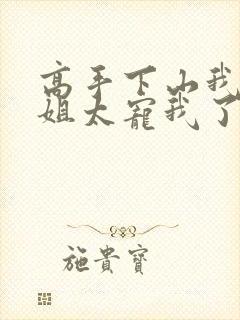 高手下山我
姐太寵我了
施貴寶